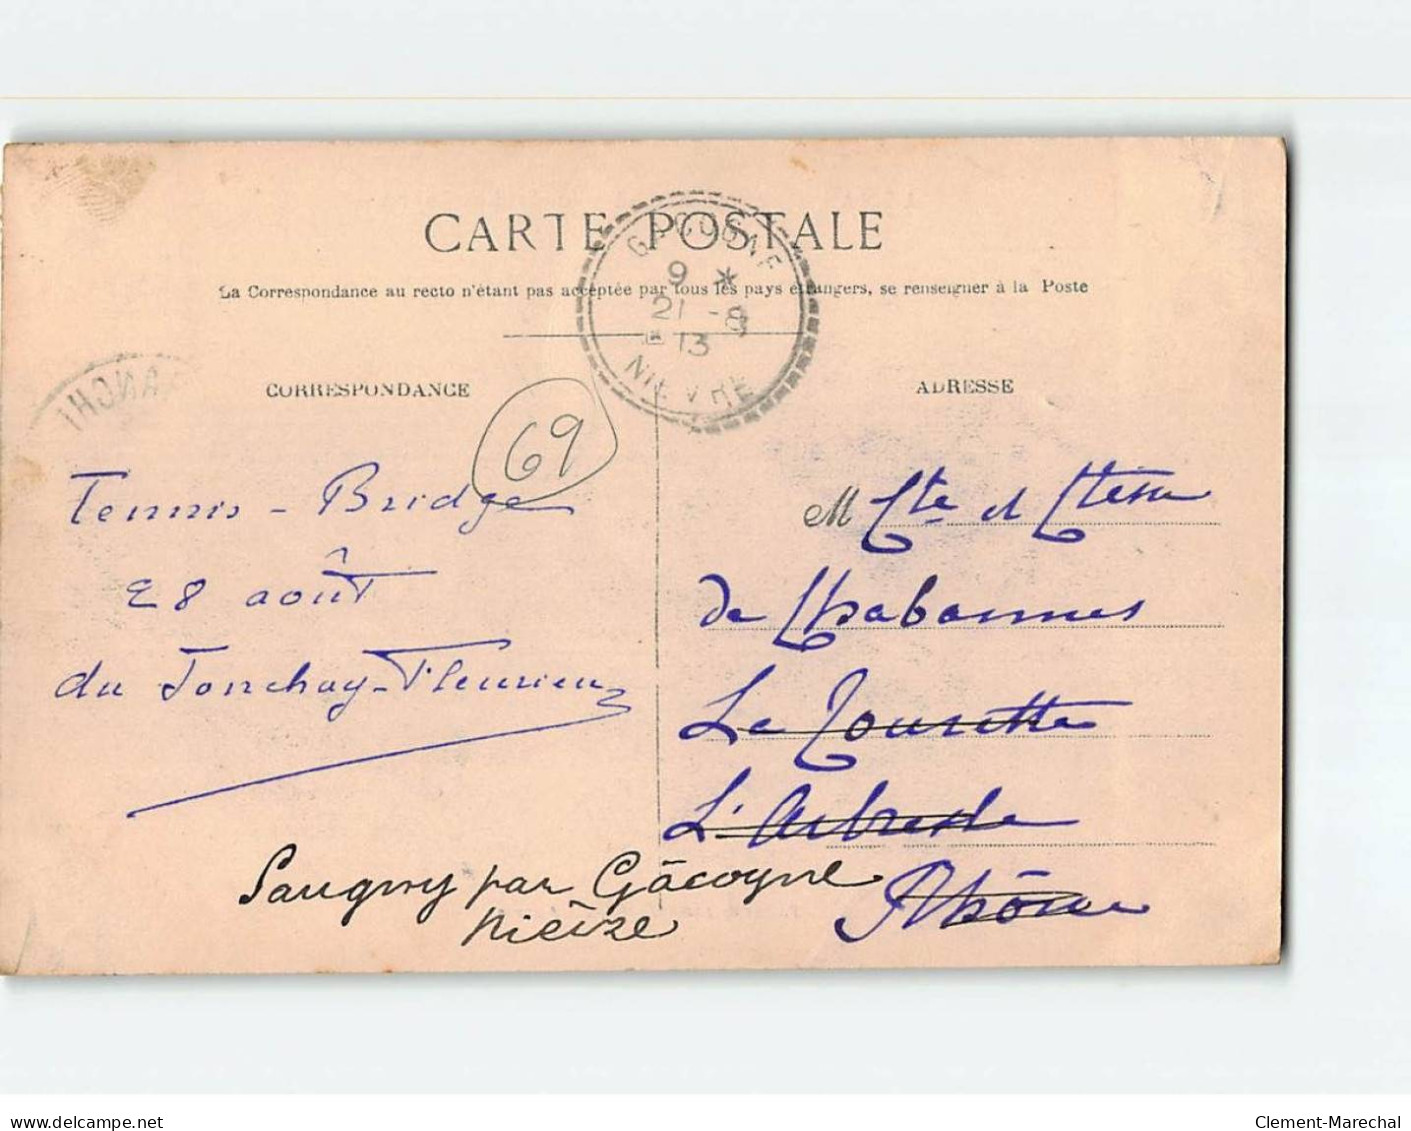 CARTE POSTALE
La Correspondance au recto n'étant pas acceptée par tous les pays étrangers, se renseigner à la Poste
GACOGNE
9 *
21 - 8
13
NIEVRE
CORRESPONDANCE
69
Tennis - Bridge
28 août
du Jonchay - Fleurieu
ADRESSE
M Cte et Ctesse
de Chabannes
La Tourette
L'Arbresle
Rhône
Saugny par Gâcogne
Nièvre
www.delcampe.net
Clement-Marechal